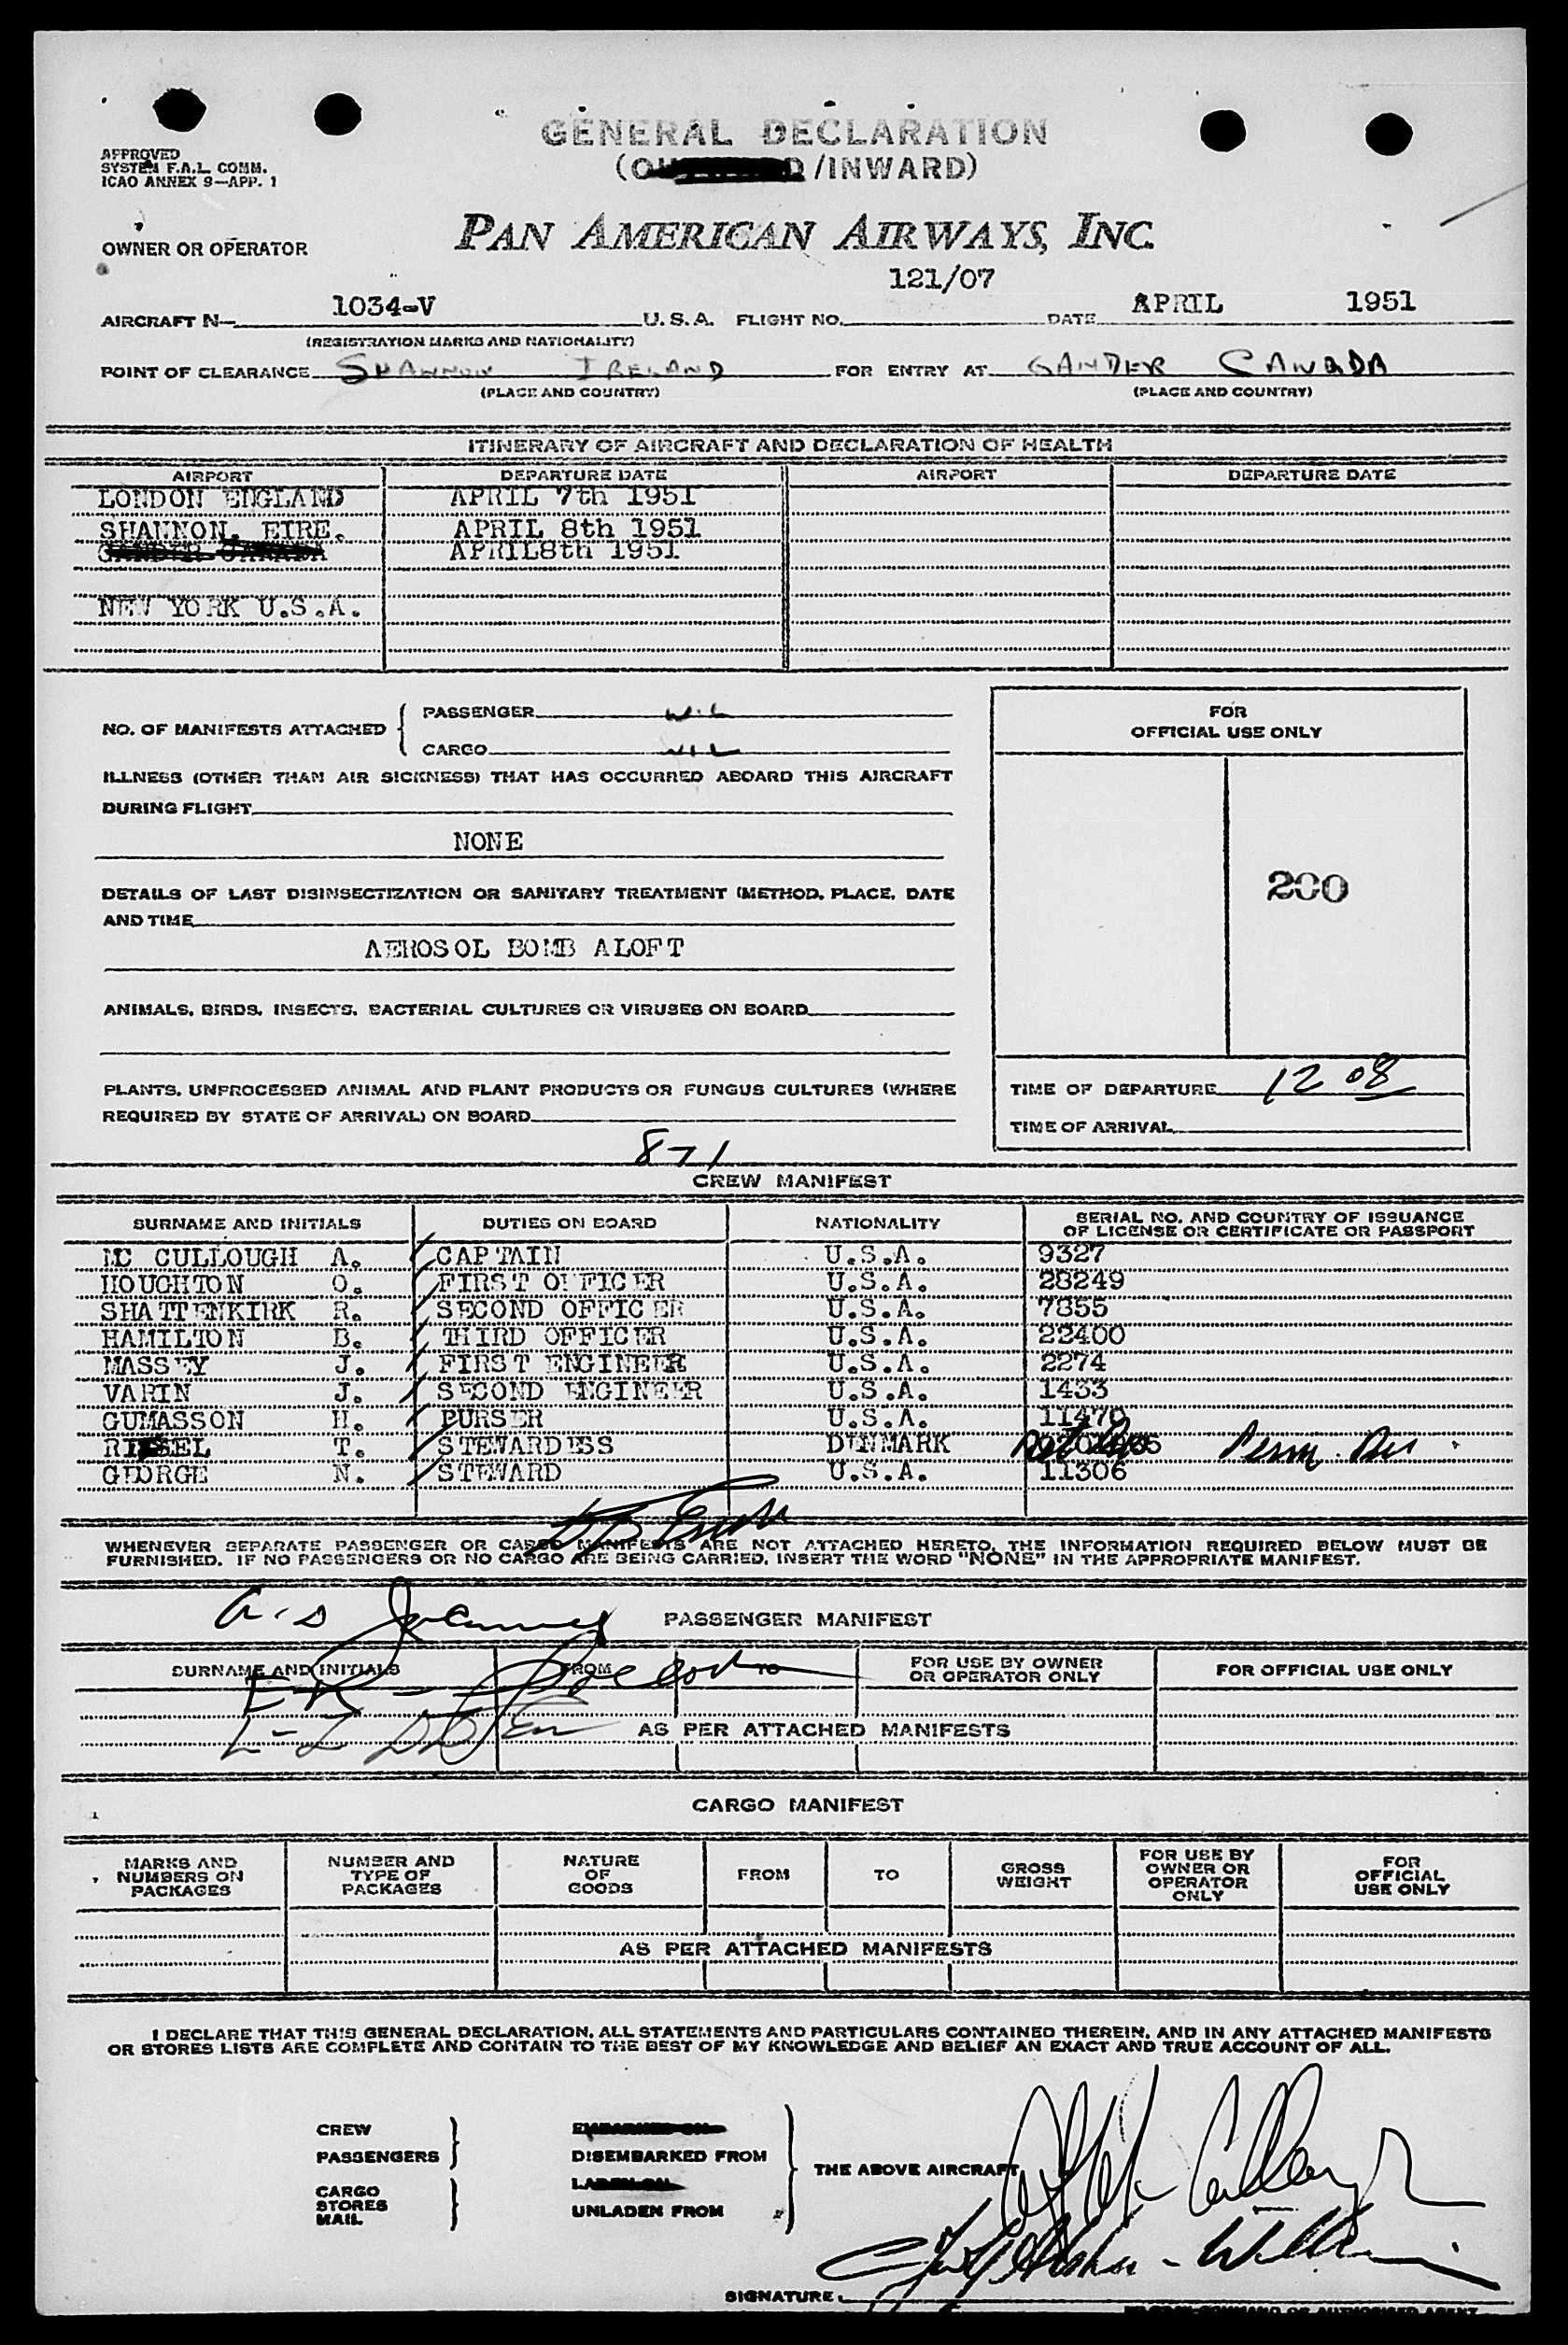 GENERAL DECLARATION
/INWARD)
APPROVED
SYSTEM F.A.L. COMM.
ICAO ANNEX 9—APP. 1
OWNER OR OPERATOR PAN AMERICAN AIRWAYS, INC.
121/07
AIRCRAFT N— 1034-V U.S.A. FLIGHT NO. DATE APRIL 1951
(REGISTRATION MARKS AND NATIONALITY)
POINT OF CLEARANCE SHANNON IRELAND FOR ENTRY AT GANDER CANADA
(PLACE AND COUNTRY) (PLACE AND COUNTRY)
ITINERARY OF AIRCRAFT AND DECLARATION OF HEALTH
AIRPORT DEPARTURE DATE AIRPORT DEPARTURE DATE
LONDON ENGLAND APRIL 7th 1951
SHANNON, EIRE. APRIL 8th 1951
GANDER CANADA APRIL8th 1951
NEW YORK U.S.A.
NO. OF MANIFESTS ATTACHED
PASSENGER NIL
CARGO NIL
ILLNESS (OTHER THAN AIR SICKNESS) THAT HAS OCCURRED ABOARD THIS AIRCRAFT
DURING FLIGHT
NONE
DETAILS OF LAST DISINSECTIZATION OR SANITARY TREATMENT (METHOD, PLACE, DATE
AND TIME
AEROSOL BOMB ALOFT
ANIMALS, BIRDS, INSECTS, BACTERIAL CULTURES OR VIRUSES ON BOARD
PLANTS, UNPROCESSED ANIMAL AND PLANT PRODUCTS OR FUNGUS CULTURES (WHERE
REQUIRED BY STATE OF ARRIVAL) ON BOARD
FOR
OFFICIAL USE ONLY
200
TIME OF DEPARTURE 12 08
TIME OF ARRIVAL
8-1
CREW MANIFEST
SURNAME AND INITIALS DUTIES ON BOARD NATIONALITY SERIAL NO. AND COUNTRY OF ISSUANCE
OF LICENSE OR CERTIFICATE OR PASSPORT
MC CULLOUGH A. CAPTAIN U.S.A. 9327
HOUGHTON O. FIRST OFFICER U.S.A. 28249
SHATTENKIRK R. SECOND OFFICER U.S.A. 7855
HAMILTON B. THIRD OFFICER U.S.A. 22400
MASSEY J. FIRST ENGINEER U.S.A. 2274
VARIN J. SECOND ENGINEER U.S.A. 1433
GUMASSON H. PURSER U.S.A. 11470
T. STEWARDESS DENMARK
GEORGE N. STEWARD U.S.A. 11306
WHENEVER SEPARATE PASSENGER OR CARGO MANIFESTS ARE NOT ATTACHED HERETO, THE INFORMATION REQUIRED BELOW MUST BE
FURNISHED. IF NO PASSENGERS OR NO CARGO ARE BEING CARRIED, INSERT THE WORD "NONE" IN THE APPROPRIATE MANIFEST.
PASSENGER MANIFEST
SURNAME AND INITIALS FROM TO FOR USE BY OWNER
OR OPERATOR ONLY FOR OFFICIAL USE ONLY
AS PER ATTACHED MANIFESTS
CARGO MANIFEST
MARKS AND
NUMBERS ON
PACKAGES
NUMBER AND
TYPE OF
PACKAGES
NATURE
OF
GOODS
FROM
TO
GROSS
WEIGHT
FOR USE BY
OWNER OR
OPERATOR
ONLY
FOR
OFFICIAL
USE ONLY
AS PER ATTACHED MANIFESTS
I DECLARE THAT THIS GENERAL DECLARATION, ALL STATEMENTS AND PARTICULARS CONTAINED THEREIN, AND IN ANY ATTACHED MANIFESTS
OR STORES LISTS ARE COMPLETE AND CONTAIN TO THE BEST OF MY KNOWLEDGE AND BELIEF AN EXACT AND TRUE ACCOUNT OF ALL.
CREW
PASSENGERS
CARGO
STORES
MAIL
EMBARKED ON
DISEMBARKED FROM
LADEN ON
UNLADEN FROM
THE ABOVE AIRCRAFT
SIGNATURE